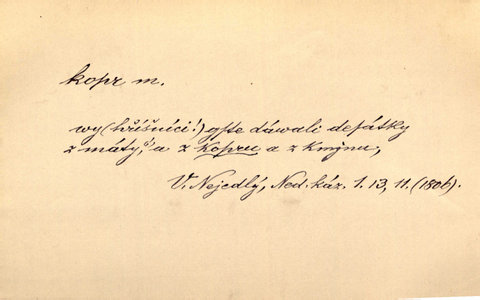 kopr m.
wy (hříšníci!) gste dáwali desátky
z máty, a z Kopru a z kmjnu,
V. Nejedlý, Ned. káz. 1. 13, 11. (1806).